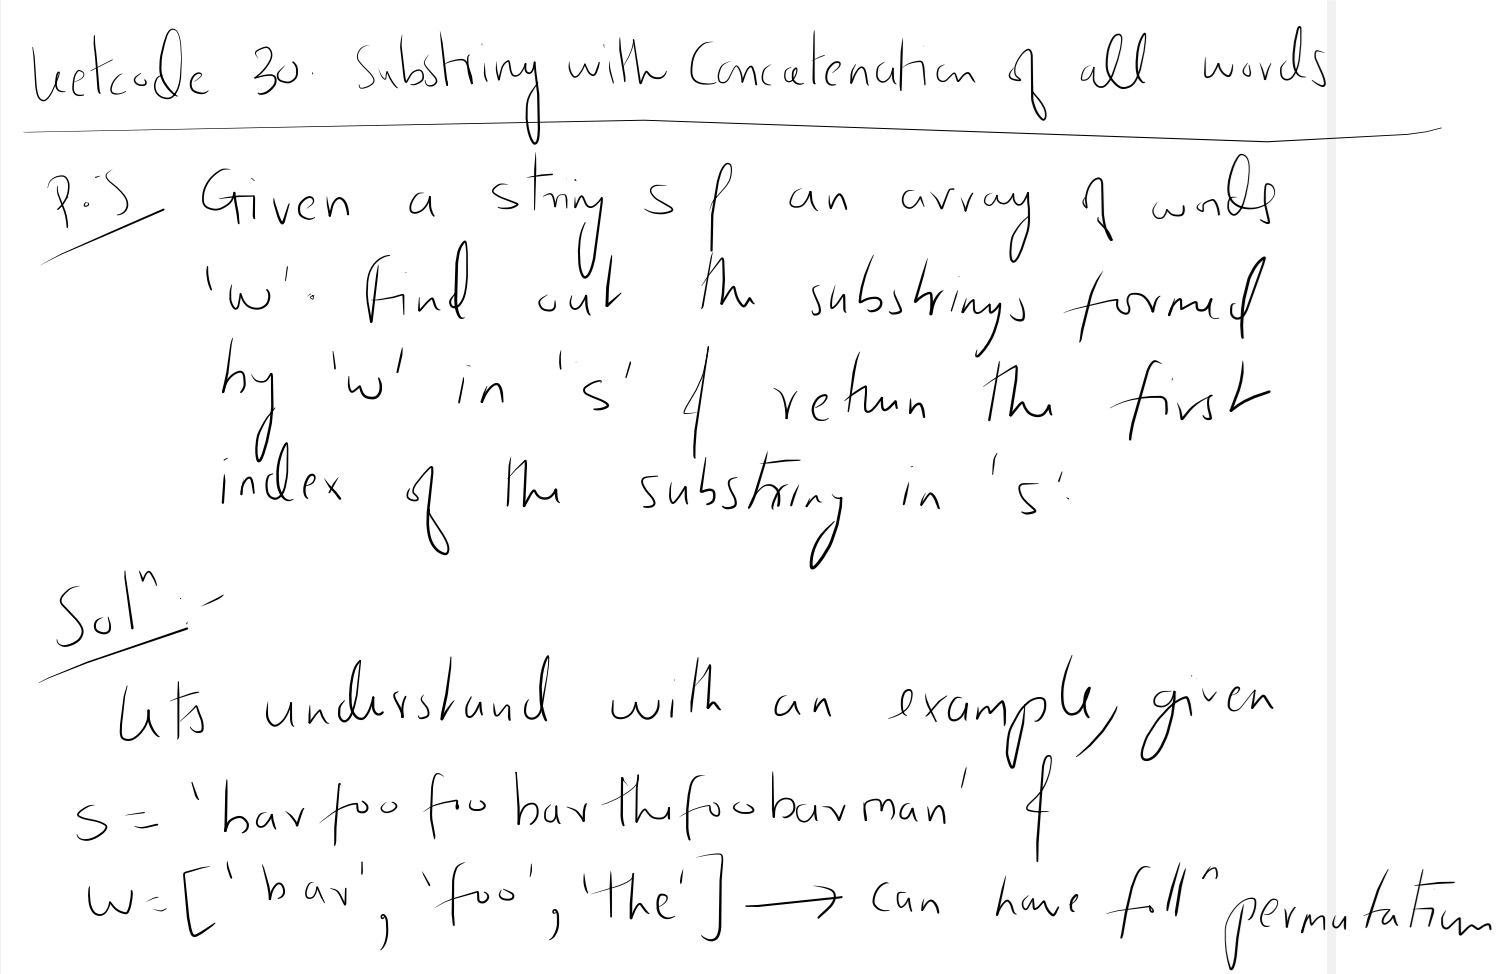 Leetcode 30. Substring with Concatenation of all words
P.S Given a string s & an array of words
'w'. Find out the substrings formed
by 'w' in 's' & return the first
index of the substring in 's'.
Solⁿ:-
Lets understand with an example, given
s = 'barfoofoobarthefoobarman' &
w = ['bar', 'foo', 'the'] → can have follⁿ permutation